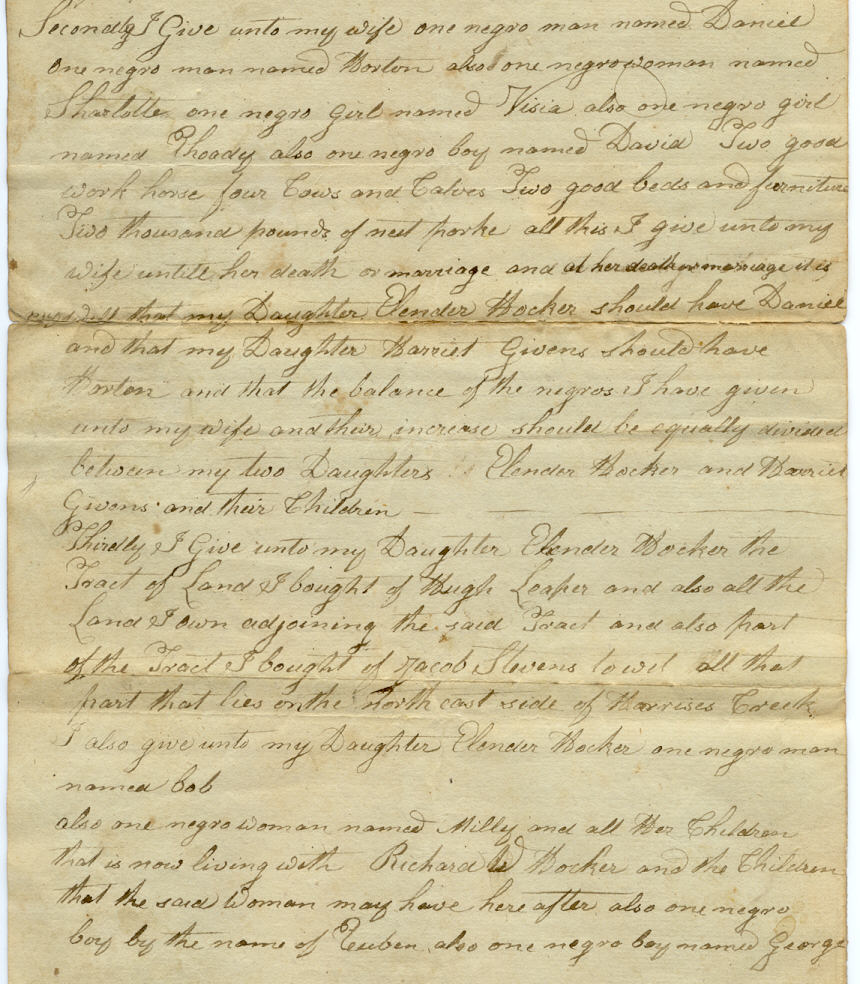 Secondly I Give unto my wife one negro man named Daniel
one negro man named Horton also one negro woman named
Sharlotte one negro girl named Visia also one negro girl
named Rhoady also one negro boy named David Two good
work horse four Cows and Calves Two good beds and furniture
Two thousand pounds of neet porke all this I give unto my
wife untill her death or marriage and at her death or marriage it is
my will that my Daughter Elender Hocker should have Daniel
and that my Daughter Harriet Givens should have
Horton and that the balance of the negros I have given
unto my wife and their increase should be equally divided
between my two Daughters Elender Hocker and Harriet
Givens and their Children
Thirdly I Give unto my Daughter Elender Hocker the
Tract of Land I bought of Hugh Leaper and also all the
Land I own adjoining the said Tract and also part
of the Tract I bought of Jacob Stevens to wit all that
part that lies on the North east side of Harrises Creek
I also give unto my Daughter Elender Hocker one negro man
named bob
also one negro woman named Milly and all Her Children
that is now living with Richard W Hocker and the Children
that the said Woman may have here after also one negro
boy by the name of Reuben also one negro boy named George